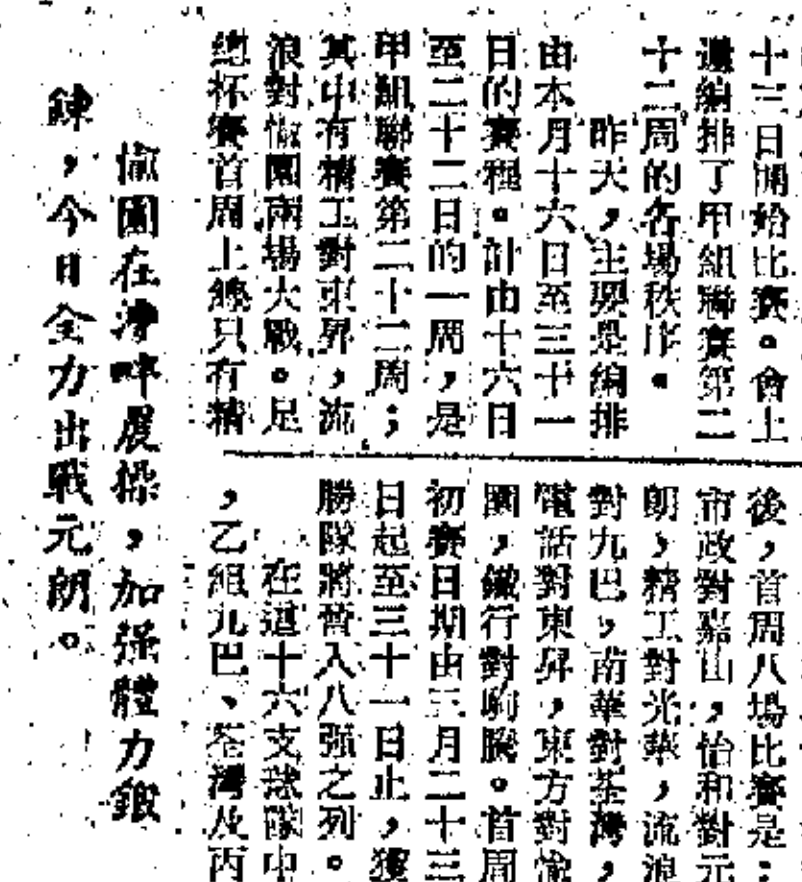 十三日開始比賽。會上
還編排了甲組聯賽第二
十二周的各場秩序。
昨天，主要是編排
由本月十六日至三十一
日的賽程。計由十六日
至二十二日的一周，是
甲組聯賽第二十二周；
其中有精工對東昇，流
浪對愉園兩場大戰。足
總杯賽首周上線只有精
後，首周八場比賽是：
市政對嘉山，怡和對元
朗，精工對光華，流浪
對九巴，南華對荃灣，
電話對東昇，東方對愉
園，鐵行對駒騰。首周
初賽日期由三月二十三
日起至三十一日止，獲
勝隊將晉入八強之列。
在這十六支球隊中
，乙組九巴、荃灣及丙
愉園在灣畔晨操，加强體力鍛
鍊，今日全力出戰元朗。